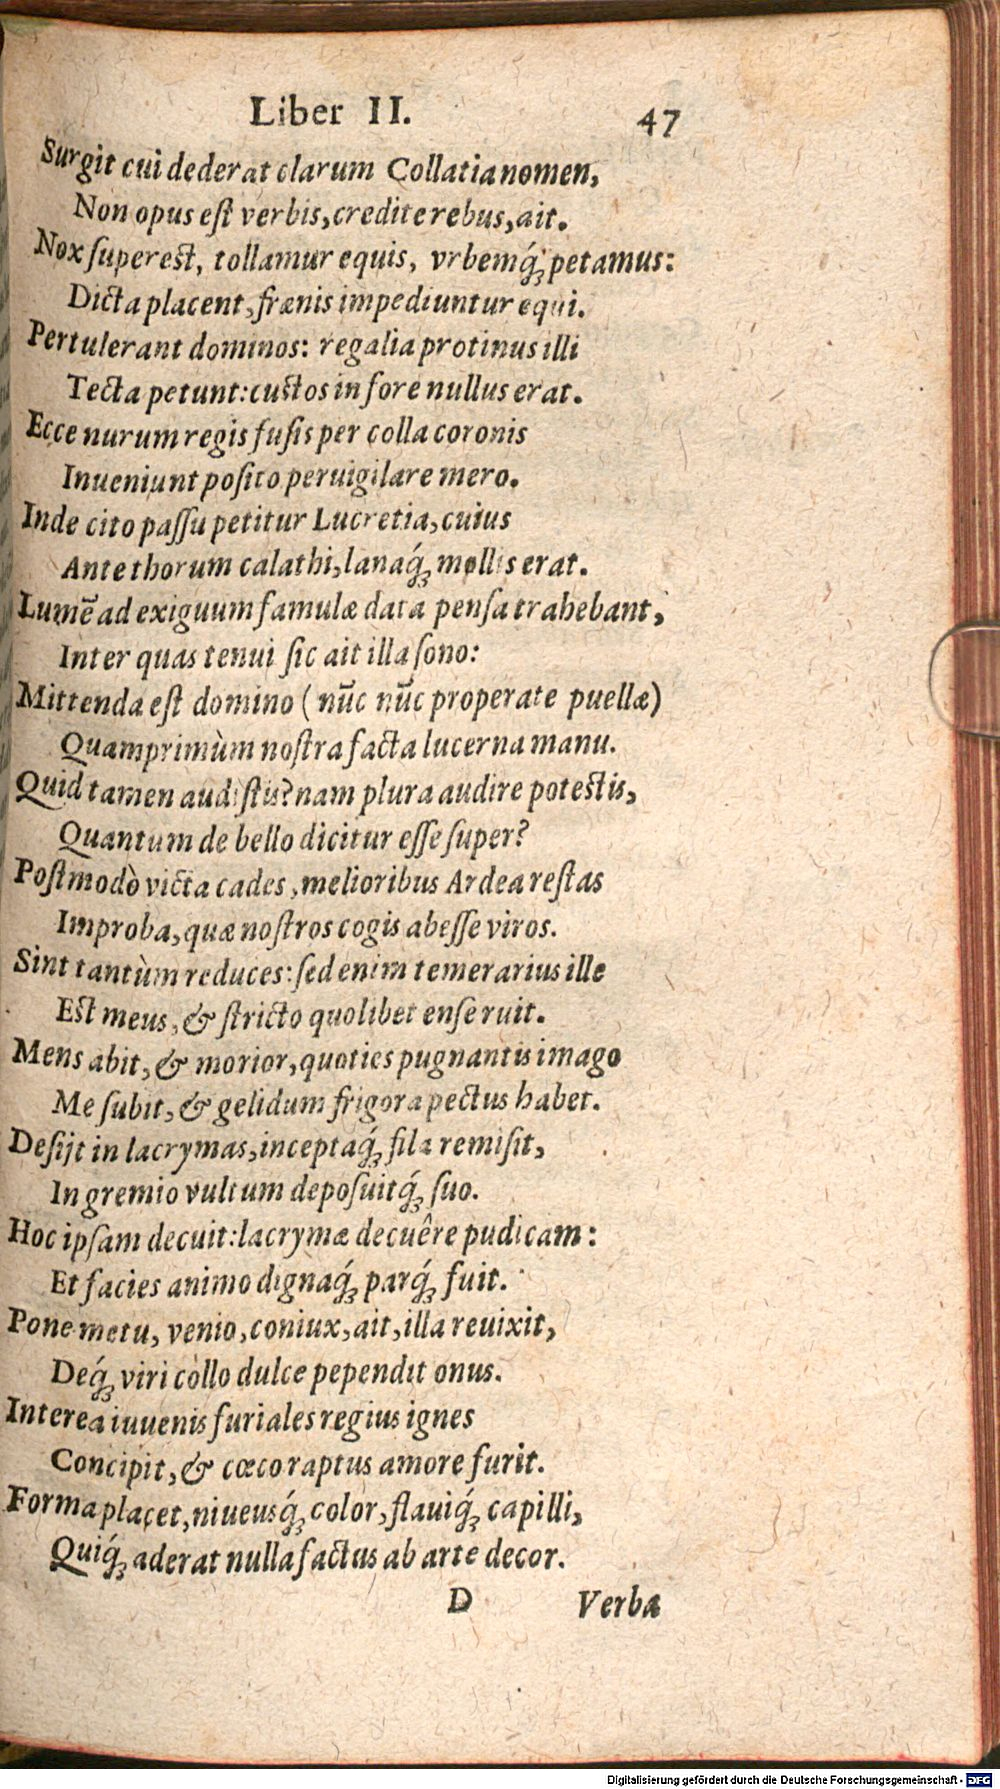 Liber II. 47
Surgit cui dederat clarum Collatia nomen,
Non opus eſt verbis, credite rebus, ait.
Nox ſupereſt, tollamur equis, vrbemq́; petamus:
Dicta placent, frænis impediuntur equi.
Pertulerant dominos: regalia protinus illi
Tecta petunt: cuſtos in fore nullus erat.
Ecce nurum regis fuſis per colla coronis
Inueniunt poſito peruigilare mero.
Inde cito paſſu petitur Lucretia, cuius
Ante thorum calathi, lanaq́; mollis erat.
Lumē ad exiguum famulæ data penſa trahebant,
Inter quas tenui ſic ait illa ſono:
Mittenda eſt domino (nūc nūc properate puellæ)
Quamprimùm noſtra facta lucerna manu.
Quid tamen audiſtis? nam plura audire poteſtis,
Quantum de bello dicitur eſſe ſuper?
Poſtmodò victa cades, melioribus Ardea reſtas
Improba, quæ noſtros cogis abeſſe viros.
Sint tantùm reduces: ſed enim temerarius ille
Eſt meus, & ſtricto quolibet enſe ruit.
Mens abit, & morior, quoties pugnantis imago
Me ſubit, & gelidum frigora pectus habet.
Deſijt in lacrymas, inceptaq́; fila remiſit,
In gremio vultum depoſuitq́; ſuo.
Hoc ipſam decuit: lacrymæ decuêre pudicam:
Et facies animo dignaq́; parq́; fuit.
Pone metu, venio, coniux, ait, illa reuixit,
Deq́; viri collo dulce pependit onus.
Interea iuuenis furiales regius ignes
Concipit, & cœco raptus amore furit.
Forma placet, niueusq́; color, flauiq́; capilli,
Quiq́; aderat nulla factus ab arte decor.
D Verba
Digitalisierung gefördert durch die Deutsche Forschungsgemeinschaft - DFG